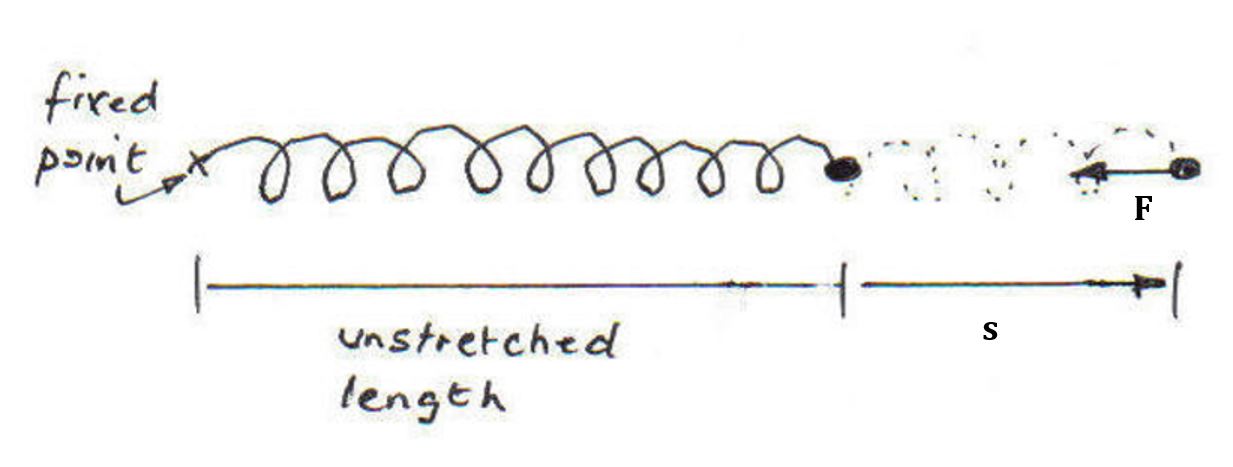 fixed
point
F
s
unstretched
length